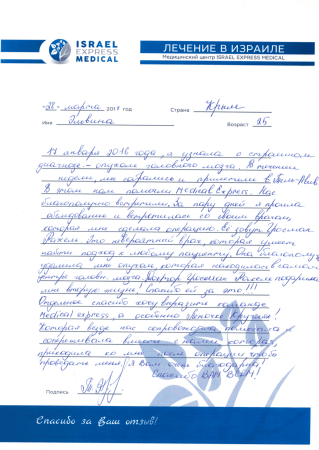 ISRAEL
EXPRESS
MEDICAL
ЛЕЧЕНИЕ В ИЗРАИЛЕ
Медицинский центр ISRAEL EXPRESS MEDICAL
"28" марта 2017 год Страна Крым
Имя Эльвина Возраст 25
17 января 2016 года, я узнала о страшном
диагнозе - опухоль головного мозга. В течении
недели, мы собрались и прилетели в Тель-Авив
В этом нам помогли Medical Express. Нас
благополучно встретили. За пару дней я прошла
обследование и встретилась со своим врачом,
которая мне сделала операцию. Её зовут Гроссман
Рахель. Это невероятный врач, которая умеет
найти подход к любому пациенту. Она благополучно
удалила мне опухоль, которая находилась в самом
центре голов. мозга. Доктор Гроссман Рахель подарила
мне вторую жизнь! Спасибо ей за это!!!
Отдельное спасибо хочу выразить команде
Medical express, а особенно Леночке
Которая везде нас сопровождала, помогала и
сопереживала вместе с нами, которая,
приходила ко мне после операции чтобы
проведать меня! Я Вам очень благодарна!
Спасибо ВАМ ВСЕМ!
Подпись
Спасибо за Ваш отзыв!